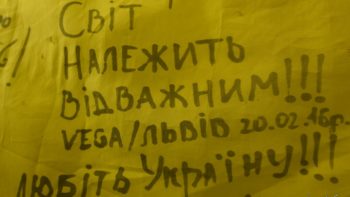 Світ
НАЛЕЖИТЬ
ВІДВАЖНИМ!!!
VEGA/ЛЬВІВ 20.02.16р.
ЛЮБІТЬ УКРАЇНУ!!!